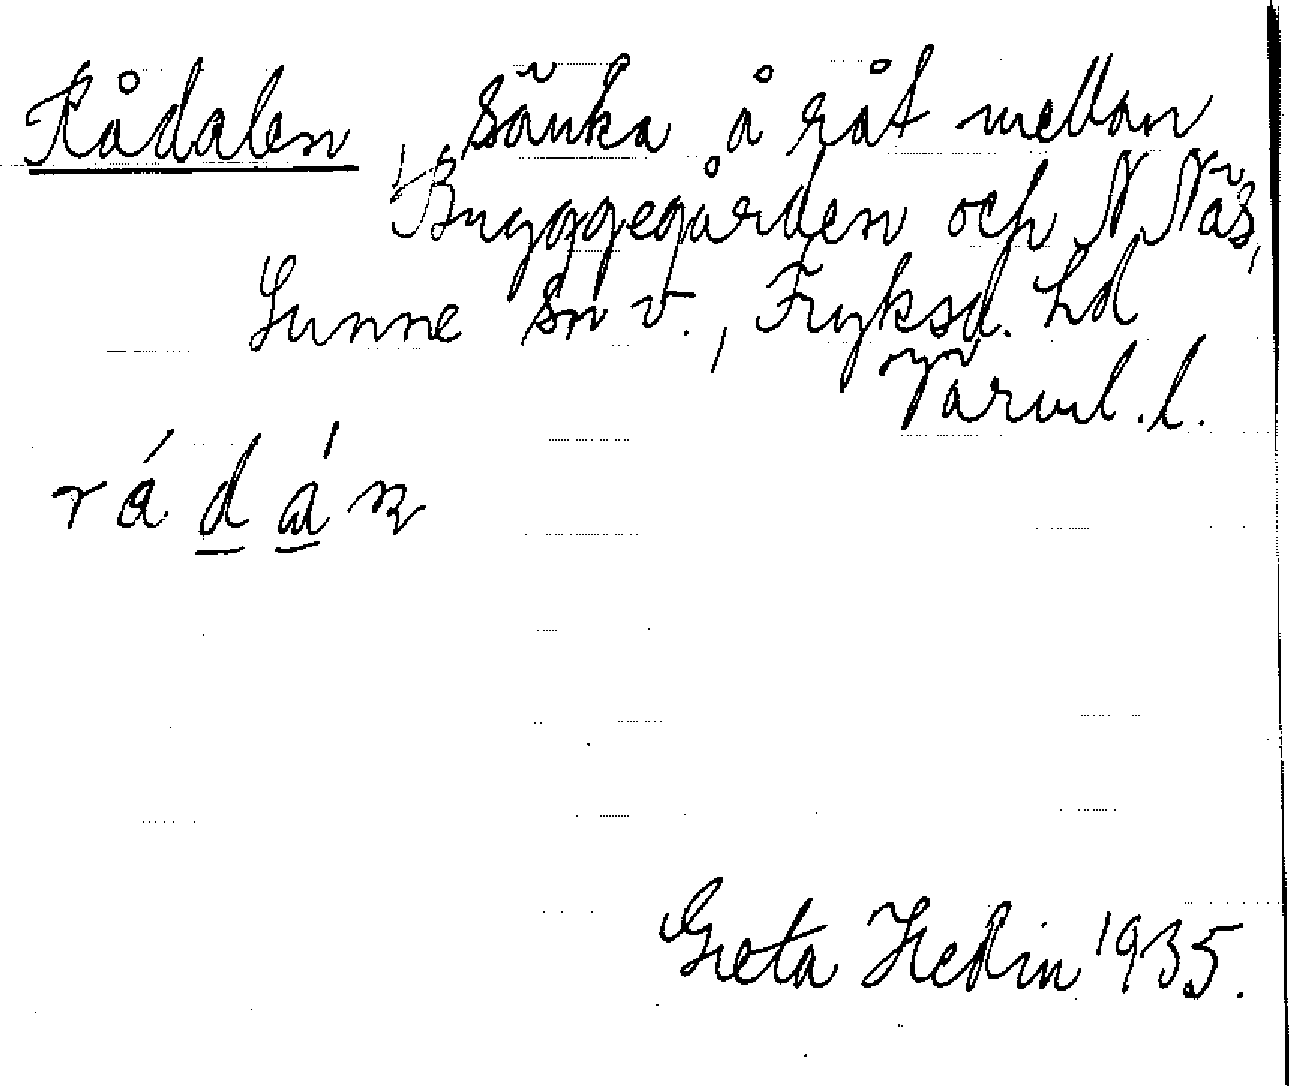 Rådalen sänka å råt mellan
Byggegården och N Näs,
Sunne sn v., Fryksd. hd
Värml. l.
rádáṉ
Greta Hedin 1935.